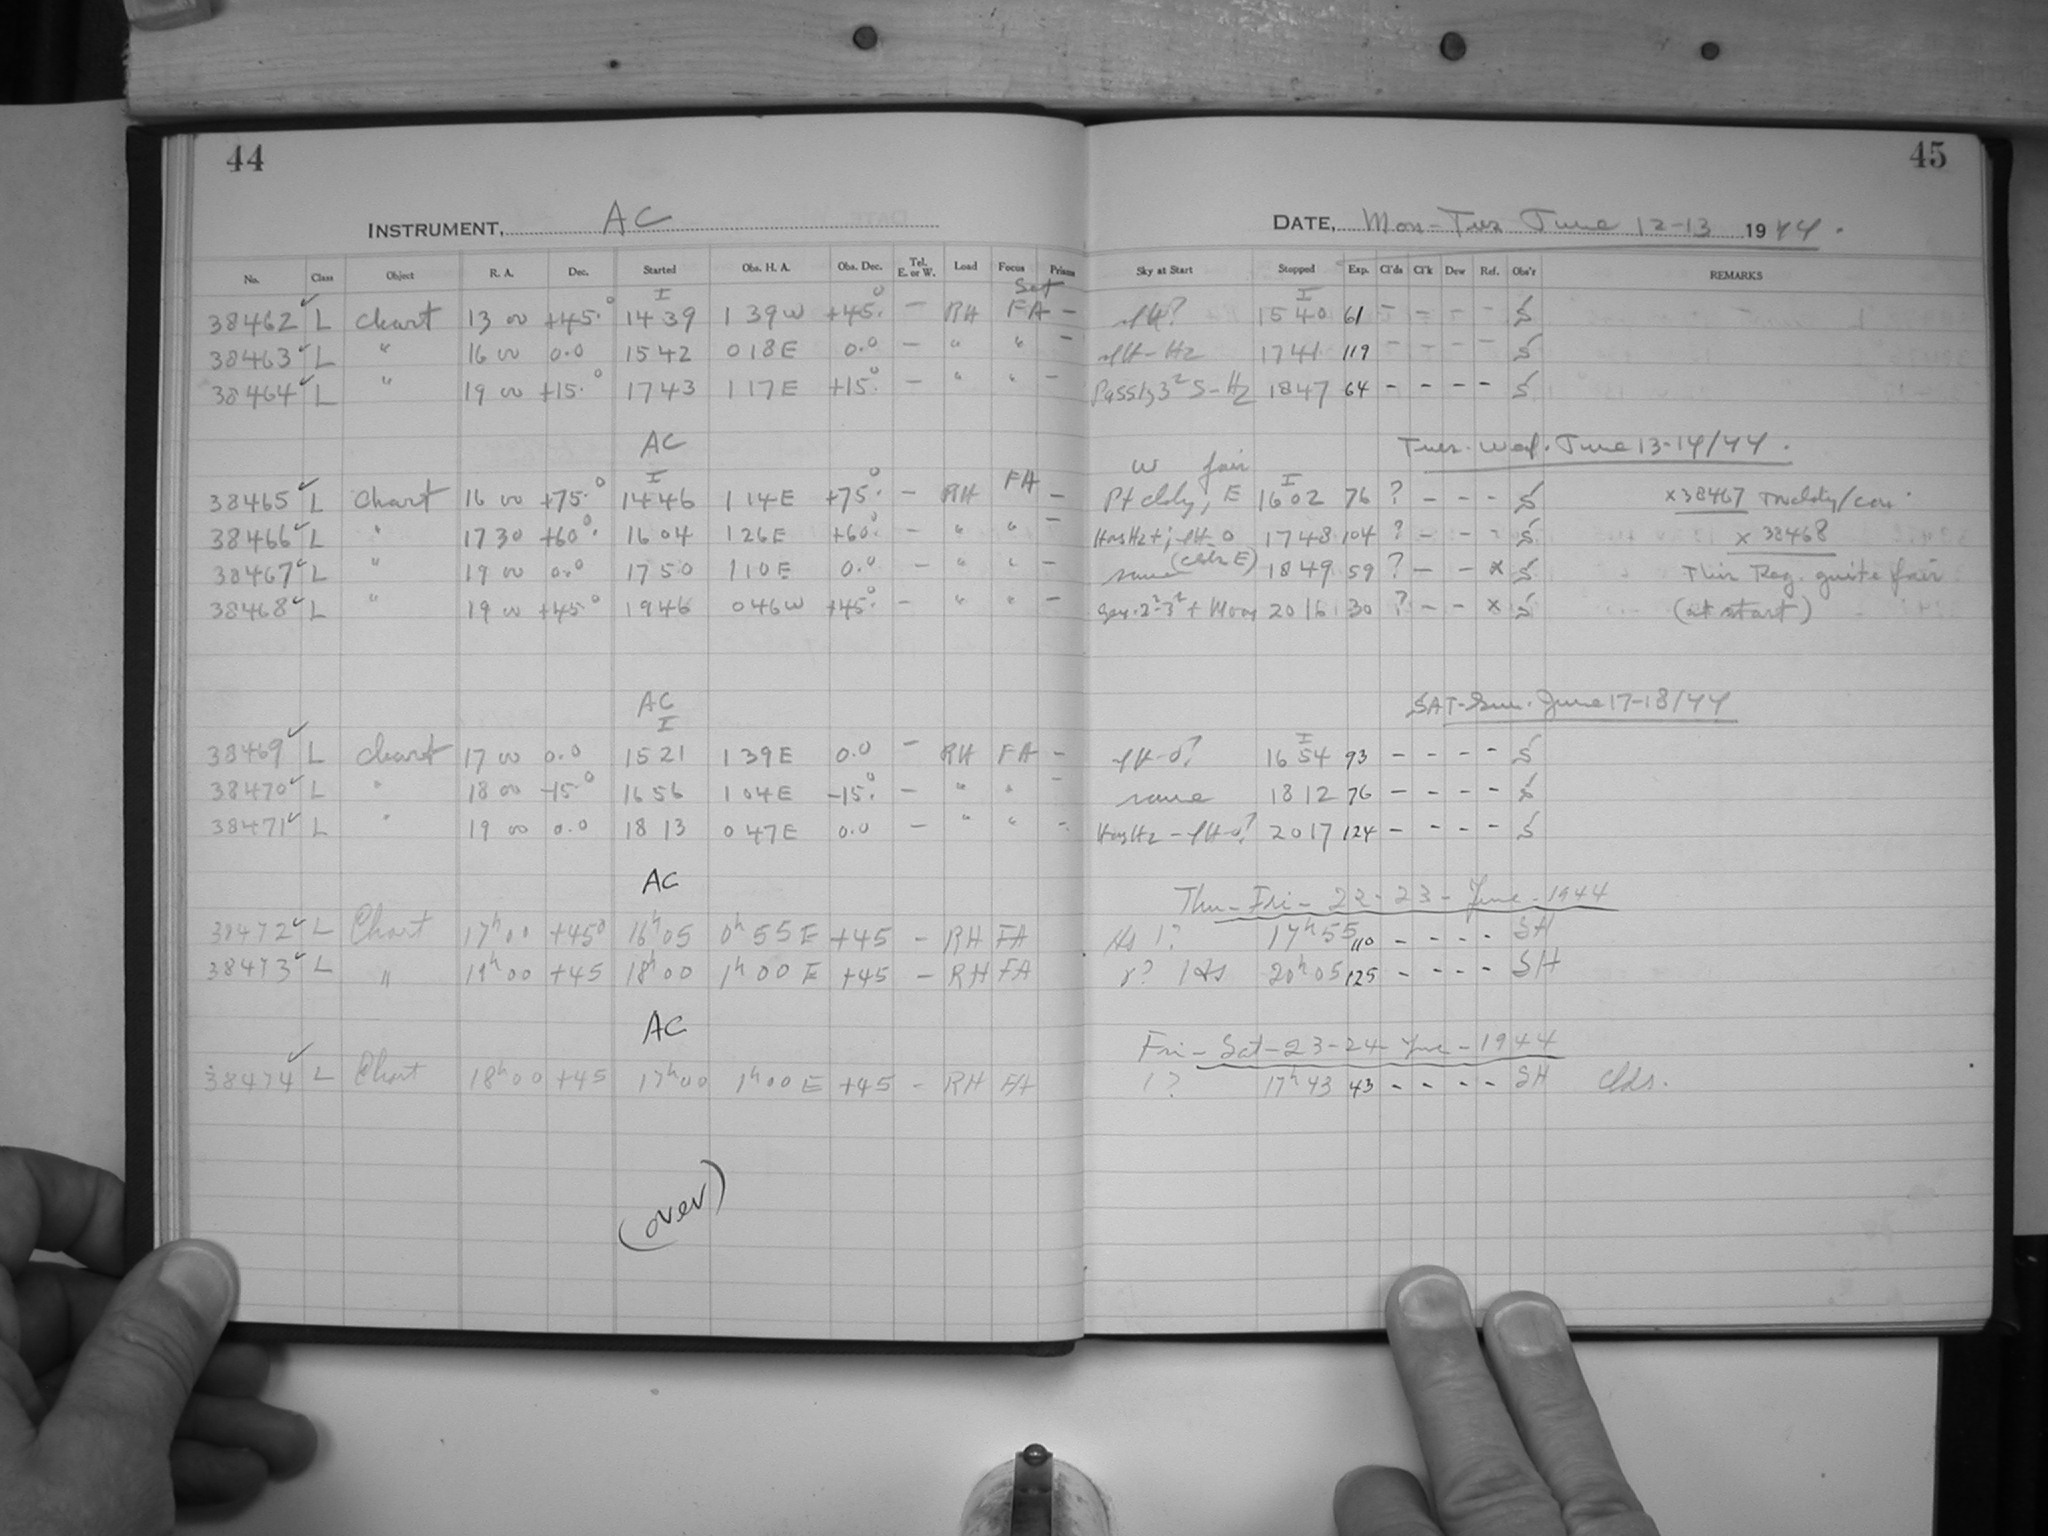 44
INSTRUMENT, AC
No. Class Object R. A. Dec. Started Obs. H. A. Obs. Dec. Tel. E. or W. Load Focus Prisms
I Set
38462 ✓ L Chart 13 00 +45.° 14 39 1 39 W +45.° – RH FA –
38463 ✓ L " 16 00 0.0 15 42 0 18 E 0.0 – " " –
38464 ✓ L " 19 00 +15.° 17 43 1 17 E +15.° – " " –
AC
I
38465 ✓ L Chart 16 00 +75.° 14 46 1 14 E +75.° – RH FA –
38466 ✓ L " 17 30 +60.° 16 04 1 26 E +60.° – " " –
38467 ✓ L " 19 00 0.0 17 50 1 10 E 0.0 – " " –
38468 ✓ L " 19 00 +45.° 19 46 0 46 W +45.° – " " –
AC
I
38469 ✓ L Chart 17 00 0.0 15 21 1 39 E 0.0 – RH FA –
38470 ✓ L " 18 00 -15.° 16 56 1 04 E -15.° – " " –
38471 ✓ L " 19 00 0.0 18 13 0 47 E 0.0 – " " –
AC
38472 ✓ L Chart 17h 00 +45° 16h 05 0h 55 E +45 – RH FA
38473 ✓ L " 19h 00 +45 18h 00 1h 00 E +45 – RH FA
AC
38474 ✓ L Chart 18h 00 +45 17h 00 1h 00 E +45 – RH FA
(over)
45
DATE, Mon-Tues June 12-13 1944.
Sky at Start Stopped Exp. Cl'ds Cl'k Dew Ref. Obs'r REMARKS
I
15 40 61 – – – – S
17 41 119 – – – – S
18 47 64 – – – – S
Tues-Wed. June 13-14/44.
W fair I
Pt cldy, E 16 02 76 ? – – – S x 38467
17 48 104 ? – – – S x 38468
same 18 49 59 ? – – x S This Reg. quite fair
+ Moon 20 16 30 ? – – x S (at start)
SAT-Sun. June 17-18/44
I
16 54 93 – – – – S
same 18 12 76 – – – – S
20 17 124 – – – – S
Thu-Fri-22-23-June-1944
1? 17h 55 110 – – – – SH
20h 05 125 – – – – SH
Fri-Sat-23-24-June-1944
1? 17h 43 43 – – – – SH Clds.